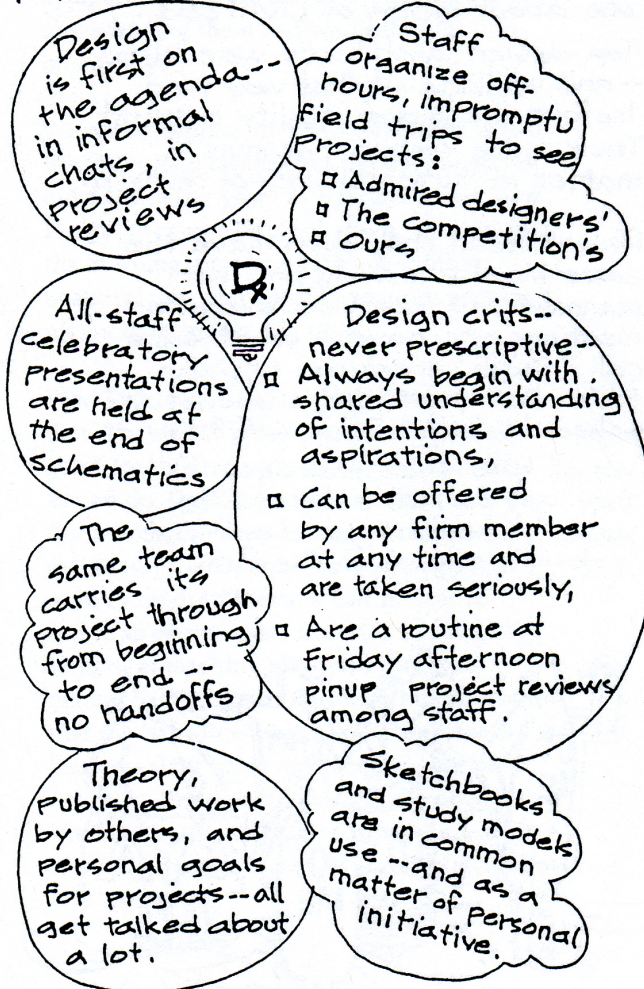 Design
is first on
the agenda--
in informal
chats, in
project
reviews
Staff
organize off-
hours, impromptu
field trips to see
projects:
□ Admired designers'
□ The competition's
□ Ours
Dx
All-staff
celebratory
presentations
are held at
the end of
schematics
Design crits--
never prescriptive--
□ Always begin with
shared understanding
of intentions and
aspirations,
□ Can be offered
by any firm member
at any time and
are taken seriously,
□ Are a routine at
Friday afternoon
pinup project reviews
among staff.
The
same team
carries its
project through
from beginning
to end --
no handoffs
Theory,
published work
by others, and
personal goals
for projects--all
get talked about
a lot.
Sketchbooks
and study models
are in common
use --and as a
matter of personal
initiative.